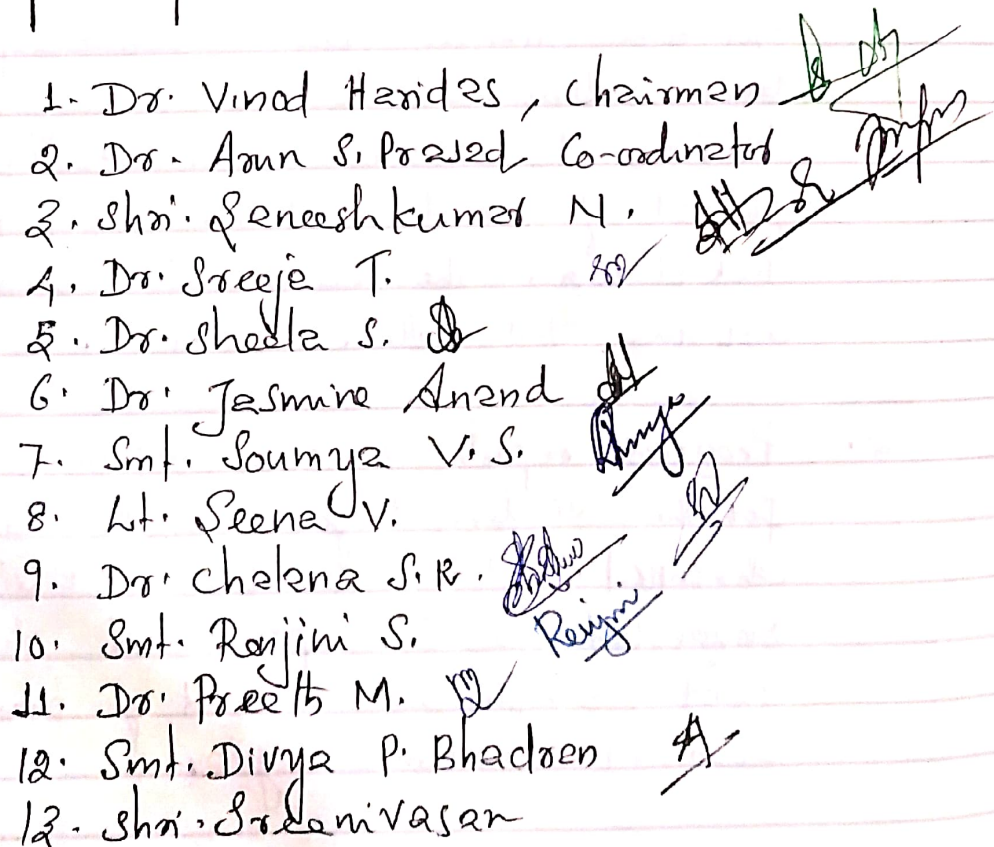 1. Dr. Vinod Haridas, Chairman
2. Dr. Arun S. Prasad Co-ordinator
3. Shri. Saneeshkumar N.
4. Dr. Sreeja T.
5. Dr. Sheela S.
6. Dr. Jasmine Anand
7. Smt. Soumya V. S.
8. Lt. Seena V.
9. Dr. Chetana S. R.
10. Smt. Renjini S.
11. Dr. Preeth M.
12. Smt. Divya P. Bhadran
13. Shri. Sreenivasan